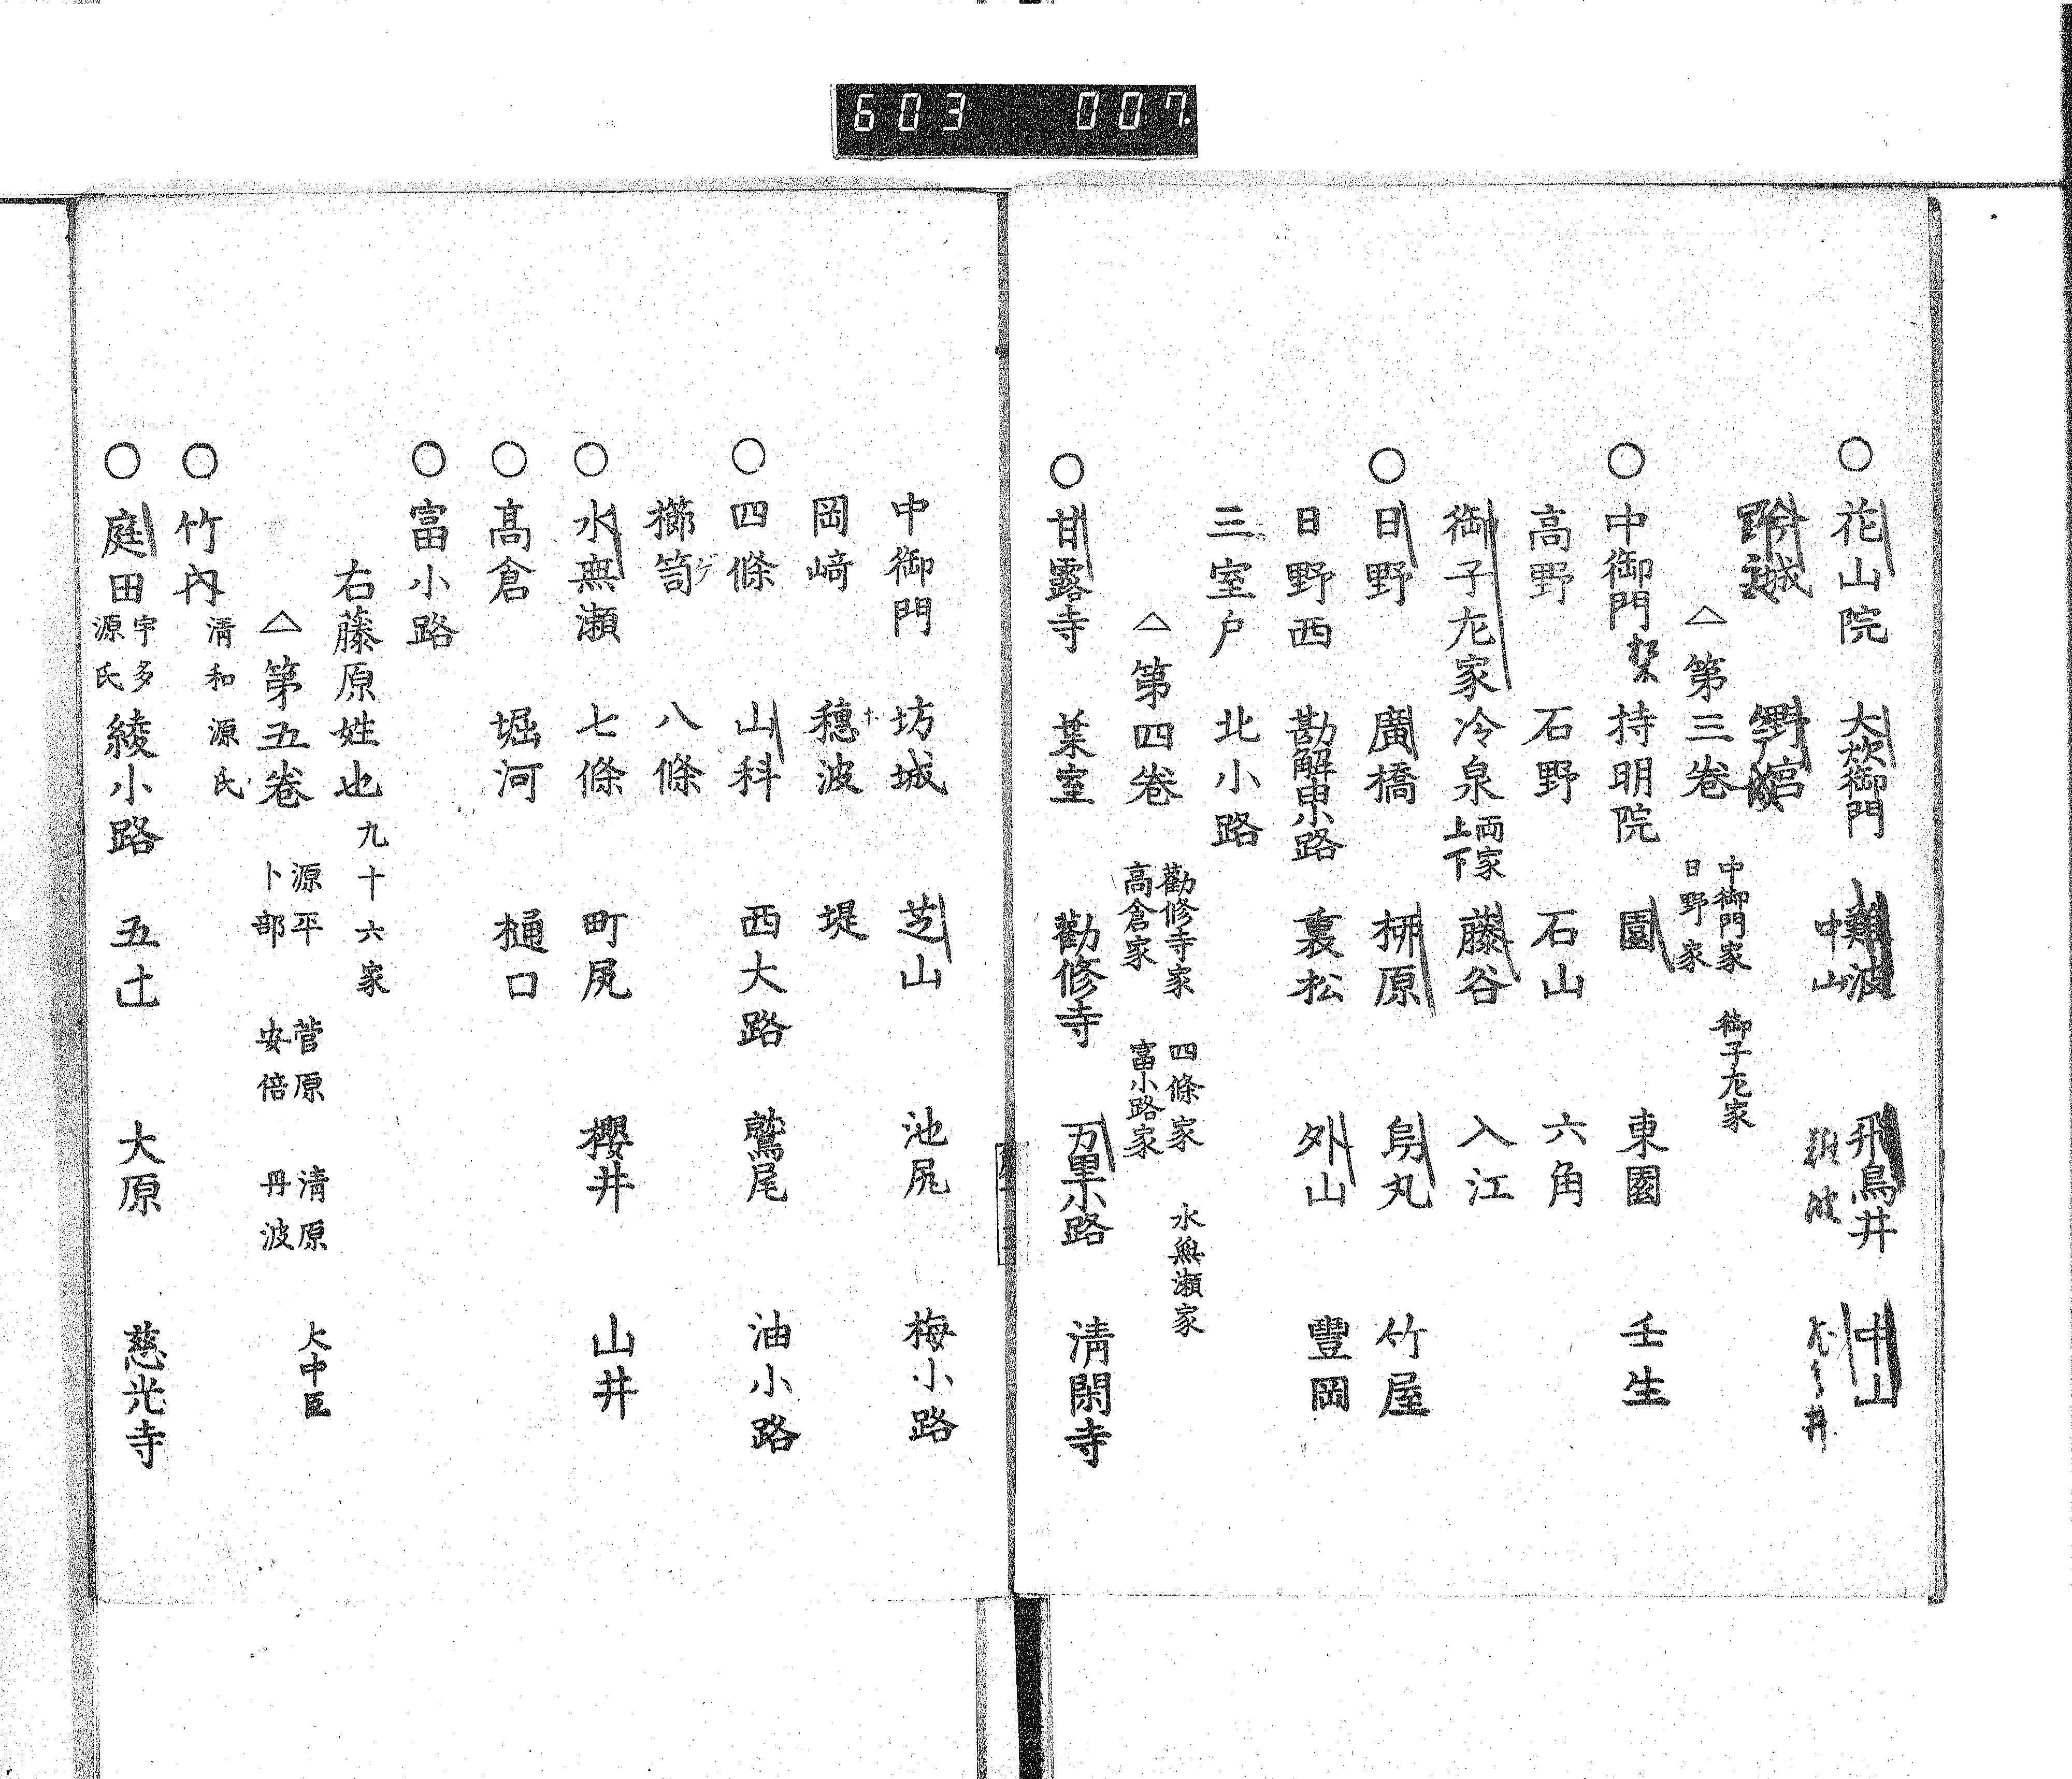 603 007.
○花山院 大炊御門 難波 飛鳥井 中山
中山
野宮 今城
△第三巻 中御門家 日野家 御子左家
○中御門 持明院 園 東園 壬生
高野 石野 石山 六角
御子左家 冷泉 両家上下 藤谷 入江
○日野 廣橋 栁原 烏丸 竹屋
日野西 勘解由小路 裏松 外山 豐岡
三室户 北小路
△第四巻 勸修寺家 高倉家 四條家 富小路家 水無瀬家
○甘露寺 葉室 勸修寺 万里小路 清閑寺
中御門 坊城 芝山 池尻 梅小路
岡﨑 穂波 堤
○四條 山科 西大路 鷲尾 油小路
櫛笥 八條
○水無瀬 七條 町尻 櫻井 山井
○髙倉 堀河 樋口
○富小路
右藤原姓也 九十六家
△第五巻 源平 卜部 菅原 安倍 清原 丹波 大中臣
○竹内 清和源氏
○庭田 宇多源氏 綾小路 五辻 大原 慈光寺